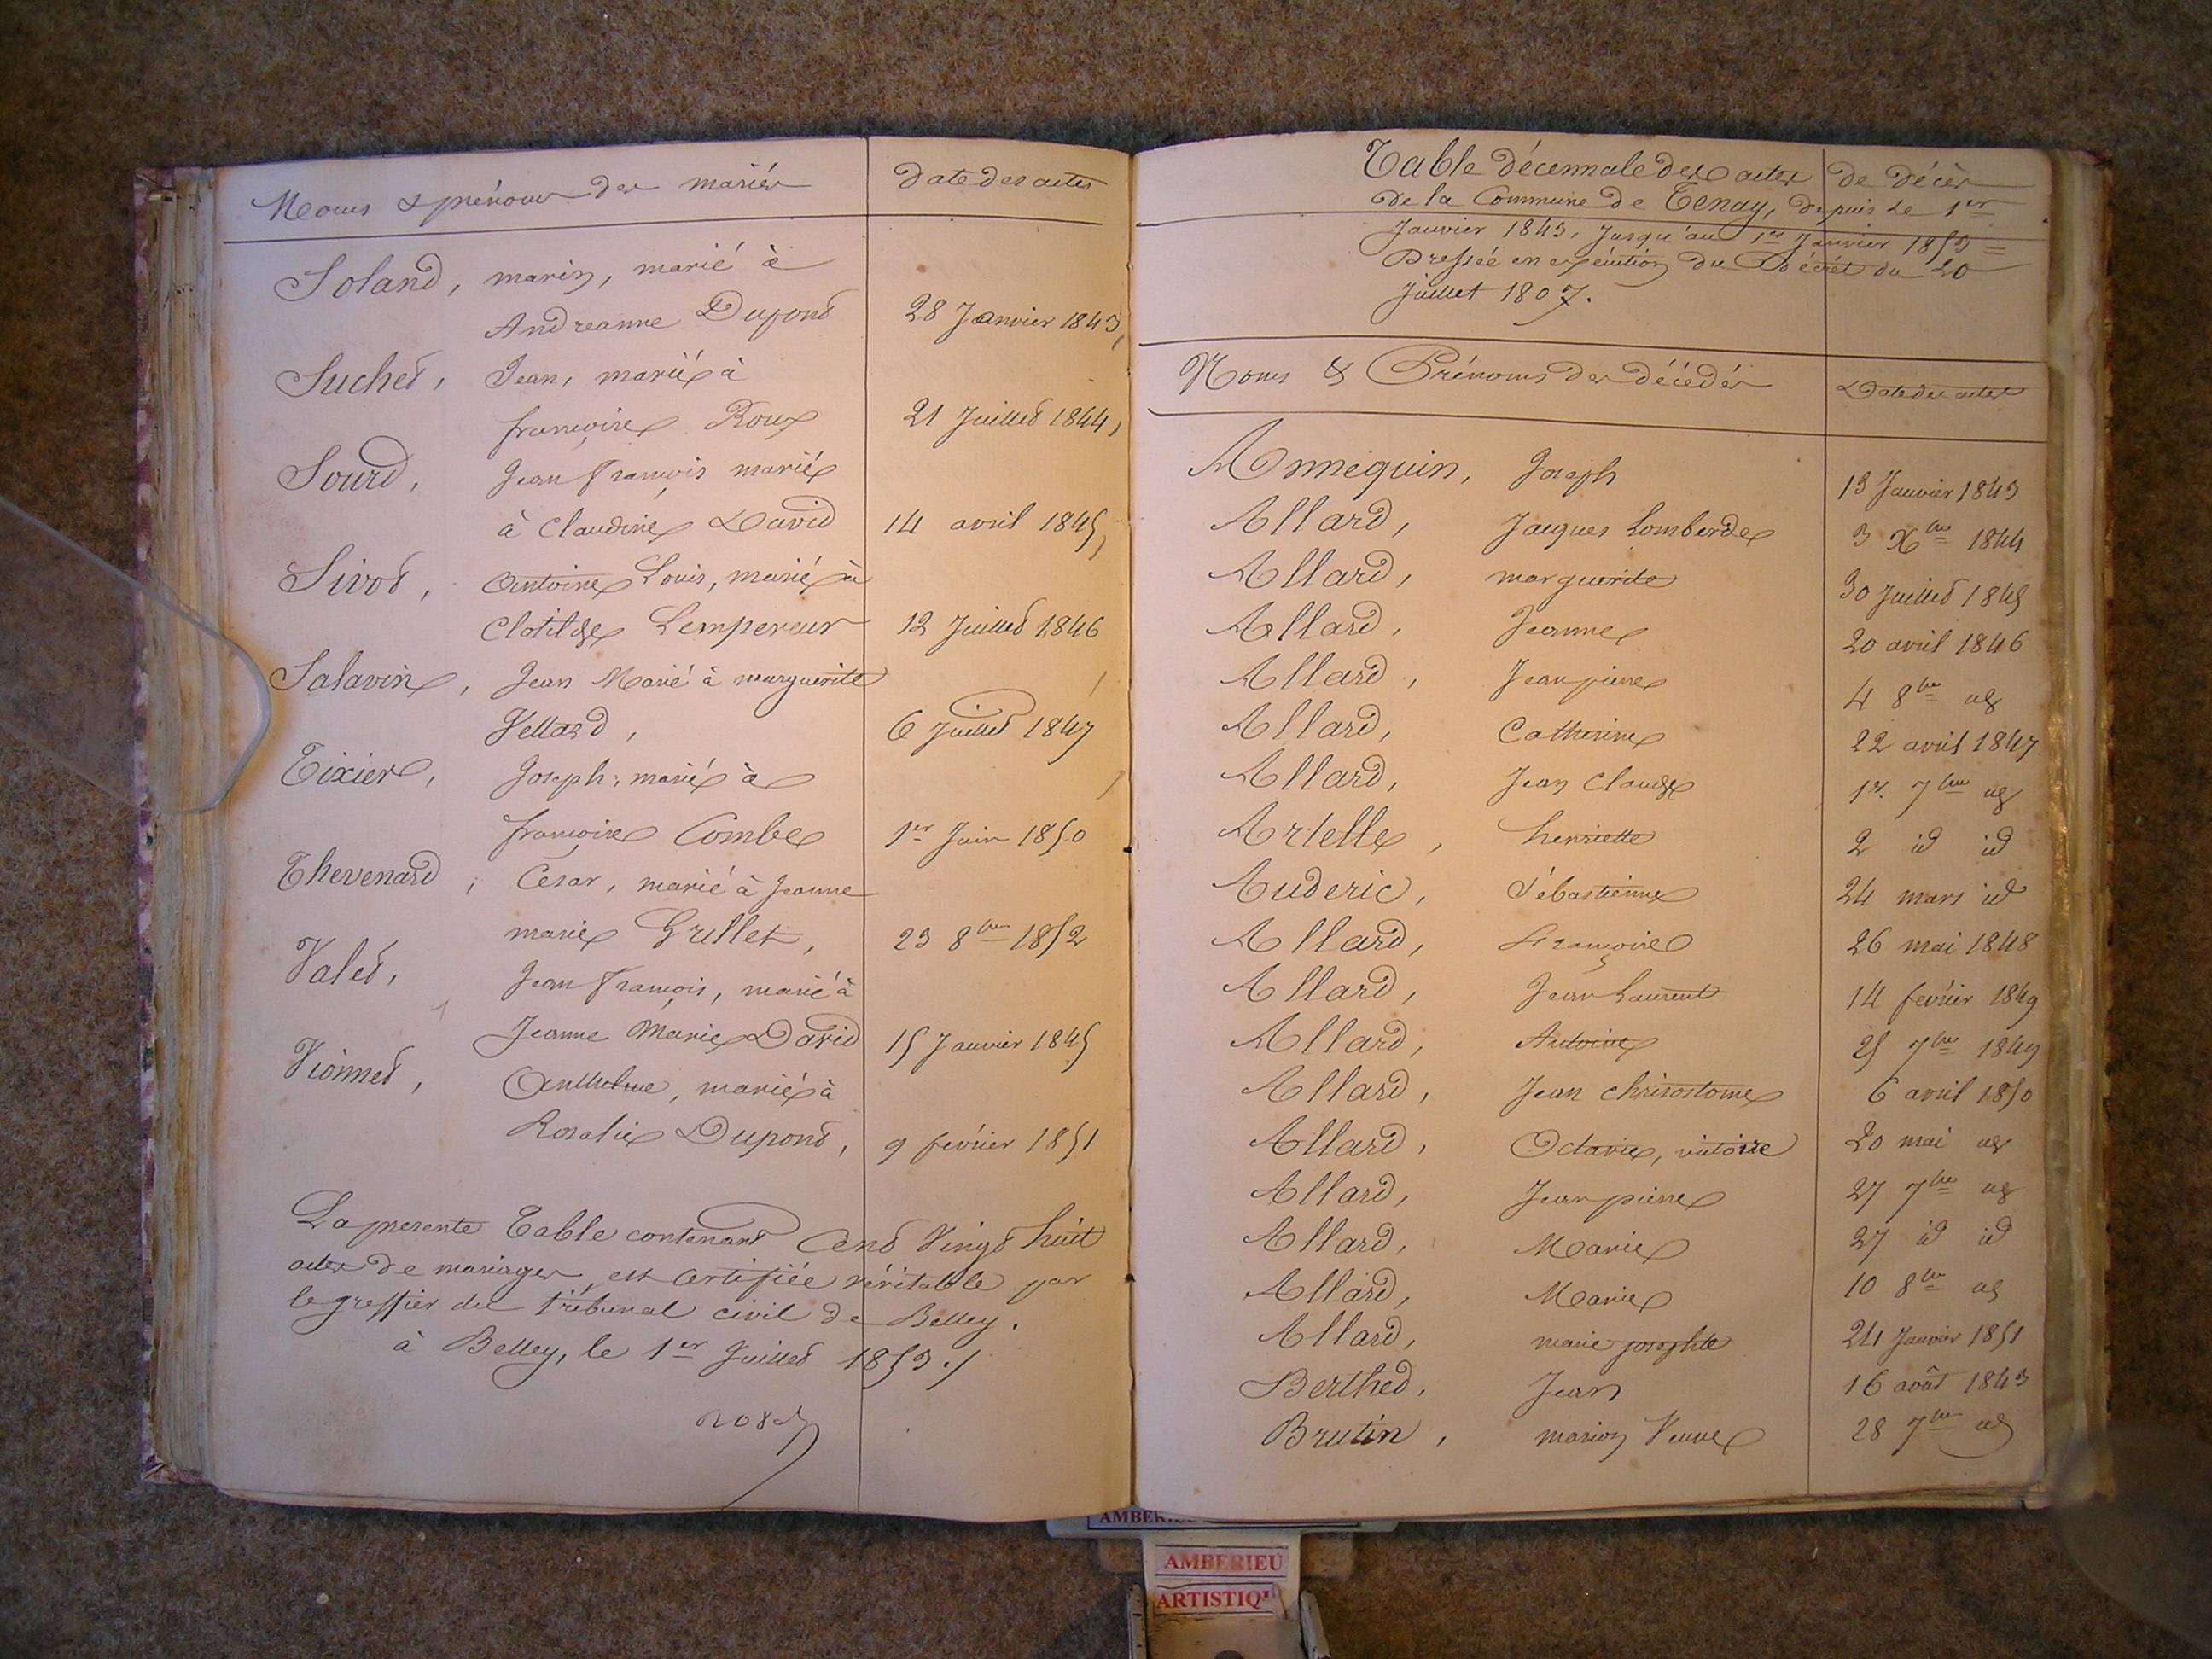 Noms & prénoms des mariés
Date des actes
Soland, marin, marié à
Andreanne Dupont 28 Janvier 1843,
Suchet, Jean, marié à
françoise Roux 21 Juillet 1844,
Sourd, Jean François marié
à Claudine David 14 avril 1845,
Sivot, Antoine Louis, marié à
Clotilde Lempereur 12 Juillet 1846
Salavin, Jean Marié à marguerite
Vellard, 6 Juillet 1847
Tixier, Joseph, marié à
françoise Combe 1er Juin 1850
Thevenard, César, marié à Jeanne
marie Grillet, 23 8bre 1852
Valet, Jean François, marié à
Jeanne Marie David 15 Janvier 1845
Vionnet, Anthelme, marié à
Rosalie Dupont, 9 février 1851
La presente Table contenant Cent Vingt huit
actes de mariages, est certifiée véritable par
le greffier du tribunal civil de Belley.
à Belley, le 1er Juillet 1853./
Table décennale des actes de décès
de la Commune de Tenay, depuis le 1er
Janvier 1843, Jusqu'au 1er Janvier 1853 =
Dressée en exécution du Décrét du 20
Juillet 1807.
Noms & Prénoms des décédés
Date des actes
Annequin, Joseph 13 Janvier 1843
Allard, Jacques Lomberde 3 Xbre 1844
Allard, marguerite 30 Juillet 1845
Allard, Jeanne 20 avril 1846
Allard, Jean pierre 4 8bre ug
Allard, Catherine 22 avril 1847
Allard, Jean Claude 1er 7bre ug
Artelle, henriette 2 id id
Auderic, Sébastienne 24 mars id
Allard, Françoise 26 mai 1848
Allard, Jean Laurent 14 février 1849
Allard, Antoine 25 7bre 1849
Allard, Jean chrisostome 6 avril 1850
Allard, Octavie, victoire 20 mai ug
Allard, Jean pierre 27 7bre ug
Allard, Marie 27 id id
Allard, Marie 10 8bre ug
Allard, marie josephte 24 Janvier 1851
Berthet, Jean 16 août 1843
Brutin, marion Veuve 28 7bre ug
AMBERIEU
ARTISTIQ